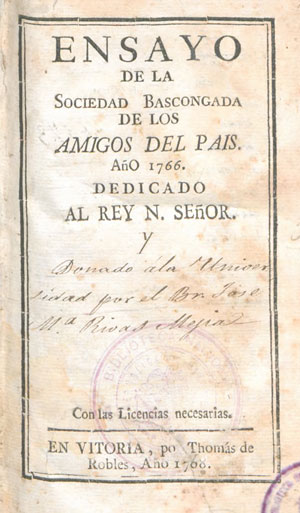 ENSAYO
DE LA
SOCIEDAD BASCONGADA
DE LOS
AMIGOS DEL PAIS.
AñO 1766.
DEDICADO
AL REY N. SEñOR.
y
Donado ála Univer
sidad por el Br. Jose
Mª Rivas Mejia
Con las Licencias necesarias.
EN VITORIA, po Thomás de
Robles, Año 1768.